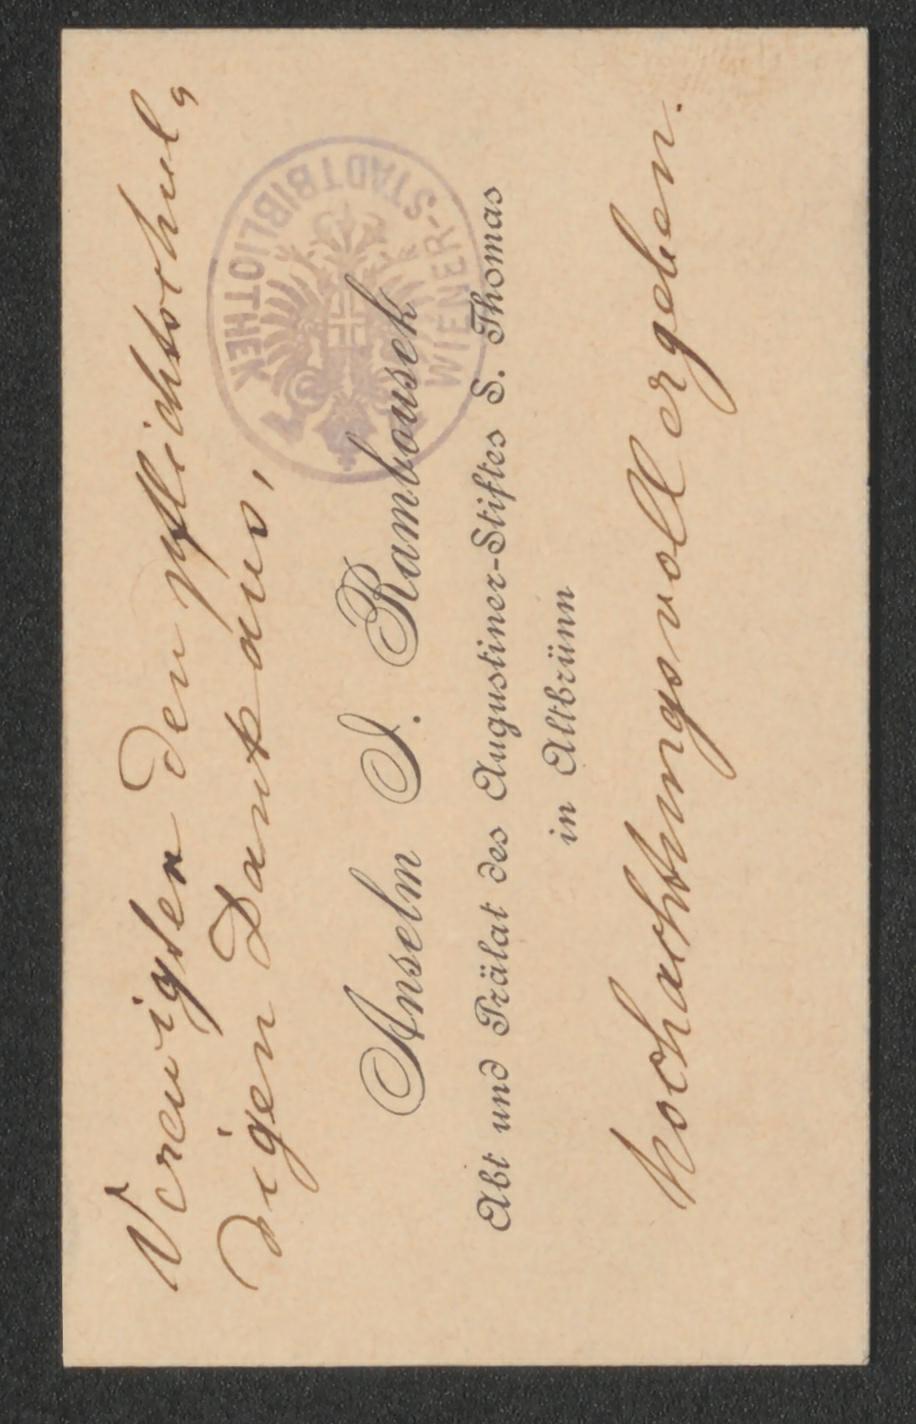 den pflichtschul-
digen Dank aus,
WIENER-STADTBIBLIOTHEK
Anselm J. Rambousek
Abt und Prälat des Augustiner-Stiftes S. Thomas
in Altbrünn
hochachtungsvoll ergeben.